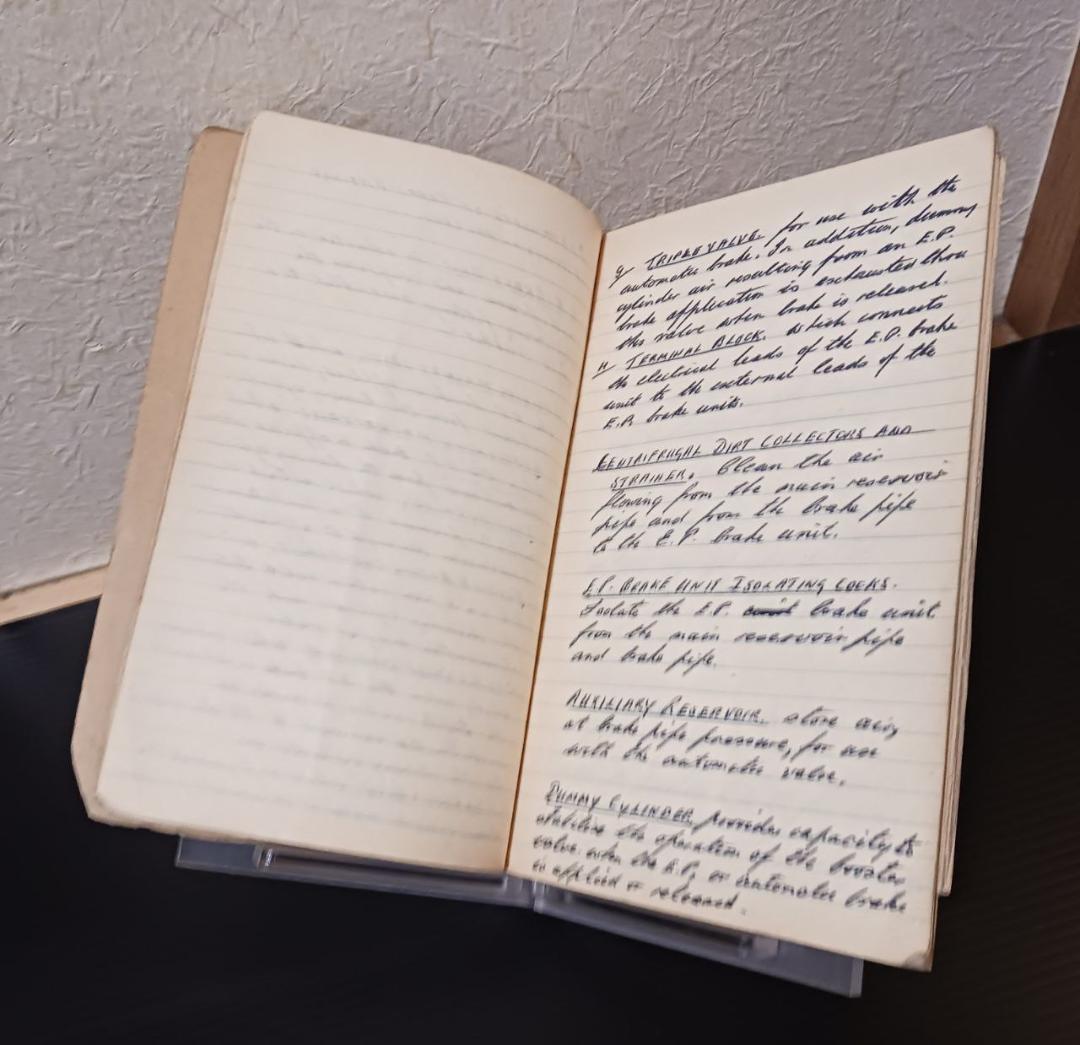 g/ TRIPLE VALVE. for use with the
automatic brake. In addition, dummy
cylinder air resulting from an E.P.
brake application is exhausted thru
this valve when brake is released.
H/ TERMINAL BLOCK. Which connects
the electrical leads of the E.P. brake
unit to the external leads of the
E.P. brake units.
CENTRIFUGAL DIRT COLLECTORS AND
STRAINER. Clean the air
flowing from the main reservoir
pipe and from the brake pipe
to the E.P. brake unit.
E.P. BRAKE UNIT ISOLATING COCKS.
Isolate the E.P. unit brake unit
from the main reservoir pipe
and brake pipe.
AUXILIARY RESERVOIR. store air,
at brake pipe pressure, for use
with the automatic valve.
DUMMY CYLINDER provides capacity to
stabilise the operation of the booster
valve when the E.P. or automatic brake
is applied or released.